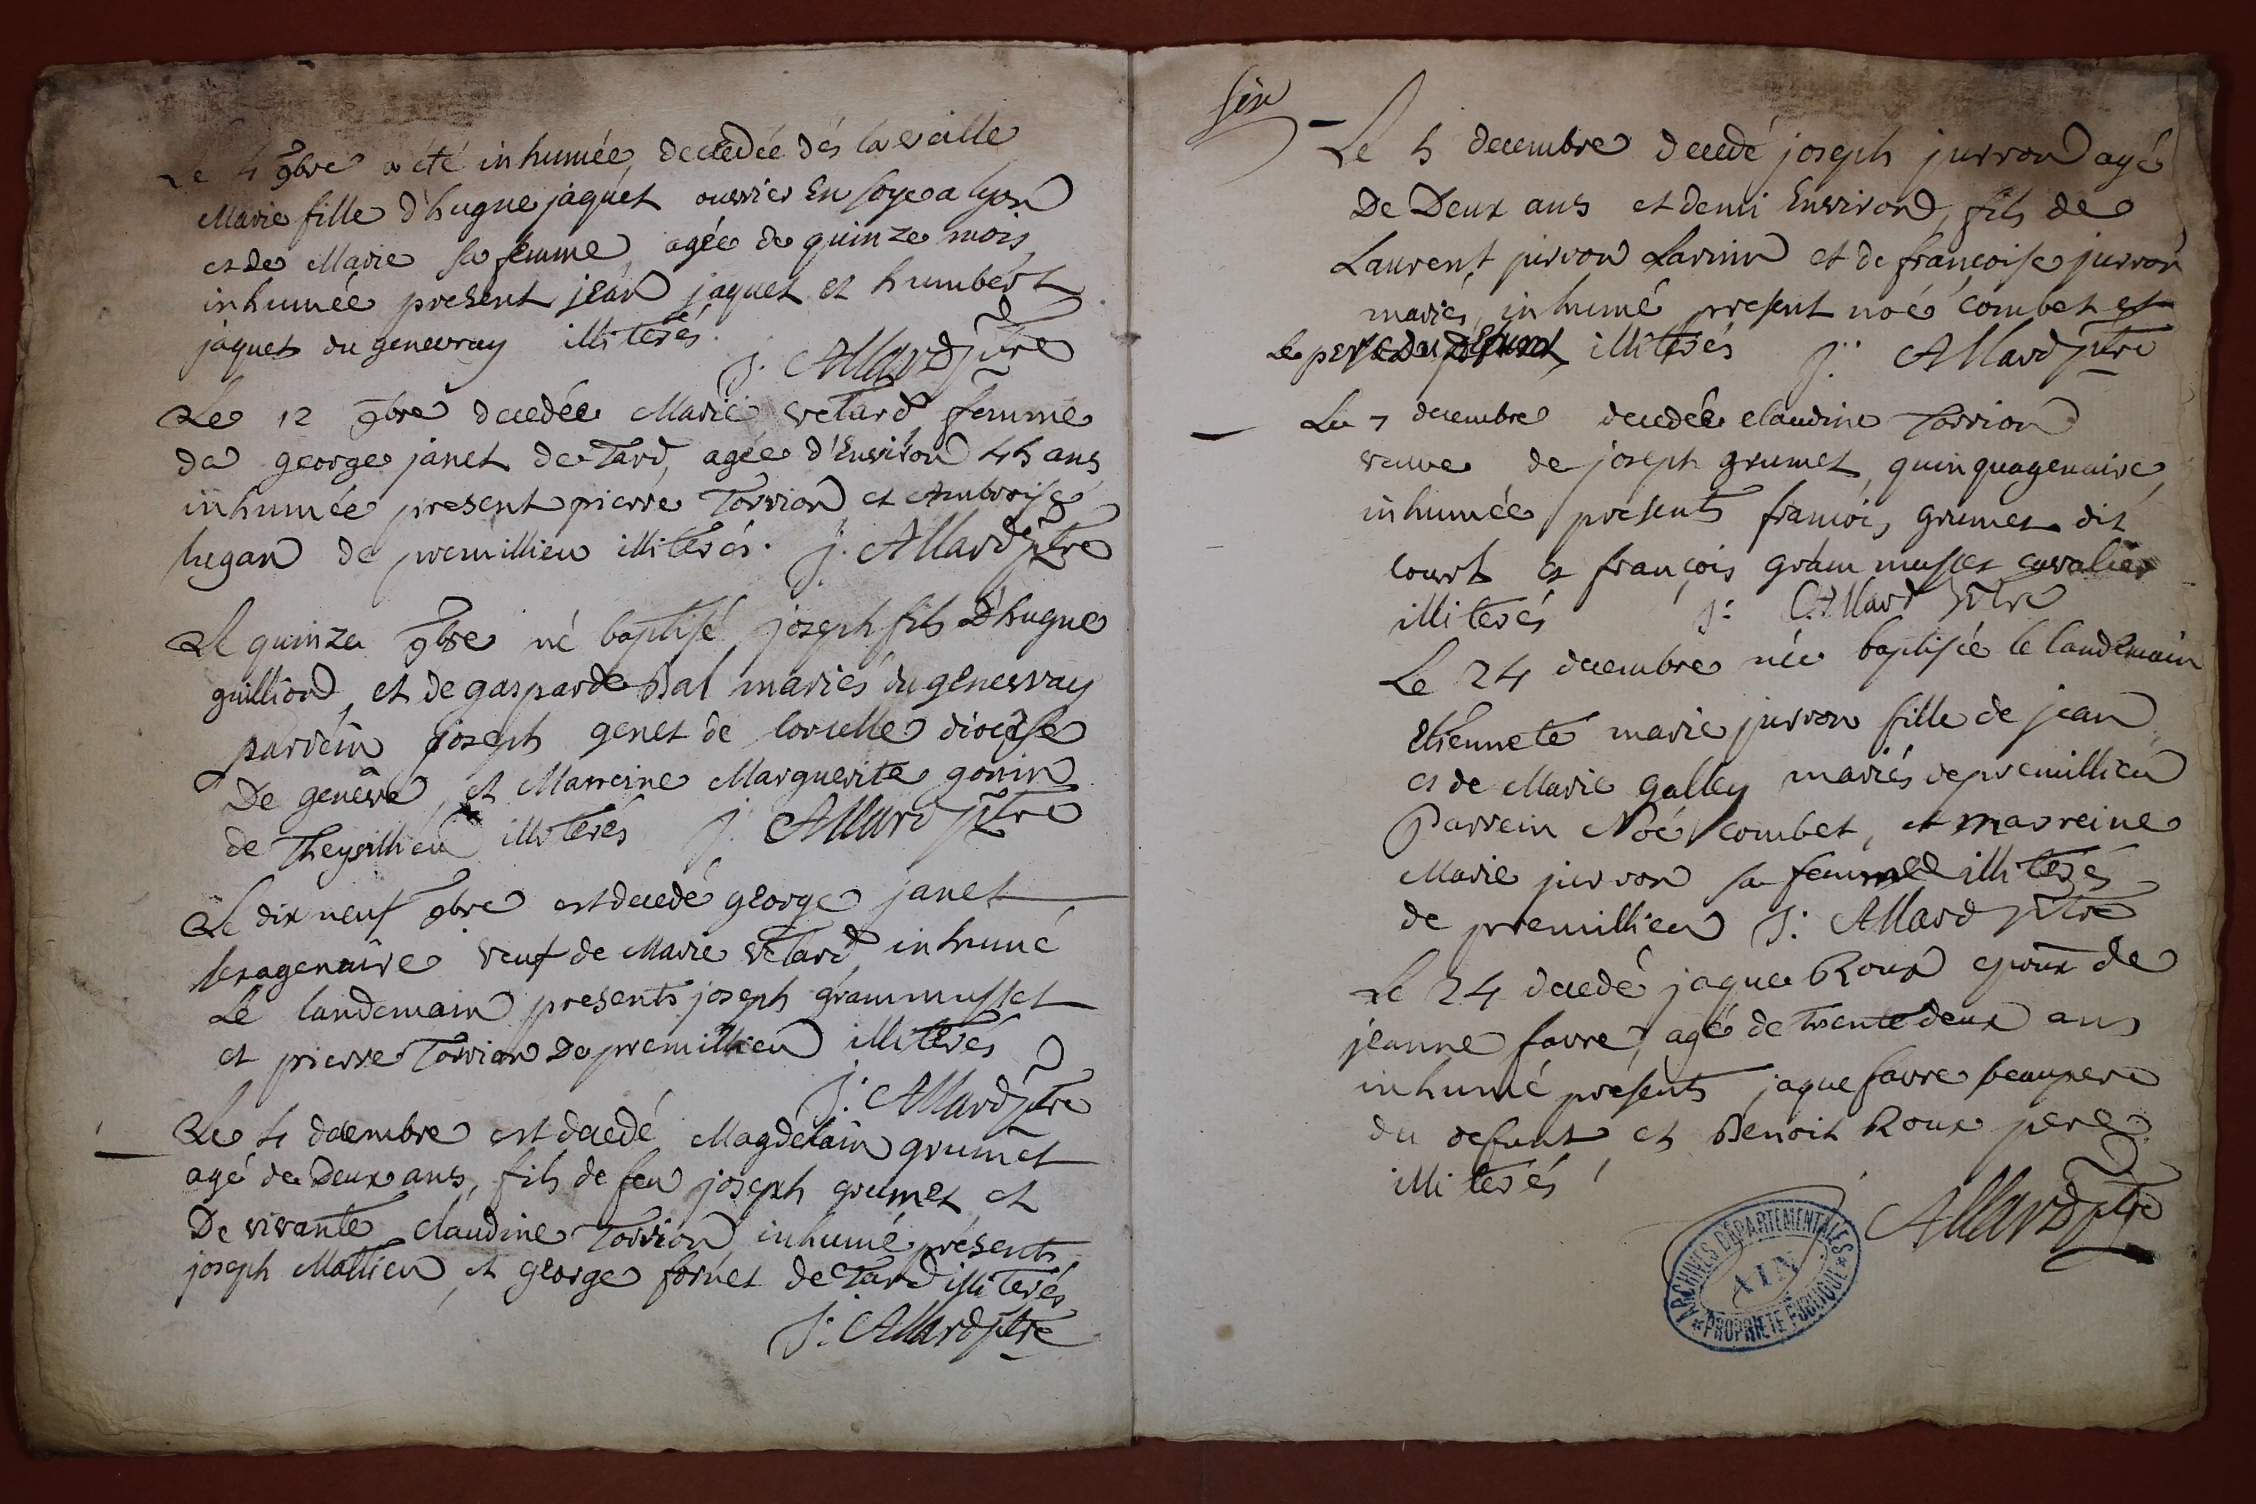 Le 4 9bre a été inhumée, decedée dés la veille
Marie fille d'hugue jaquet ouvrier En soye a lyon
et de Marie sa femme, agée de quinze mois
inhumée present jean jaquet et humbert
jaquet du genevray illiterés.
J. Allard ptre
Le 12 9bre decedée Marie vetard femme
de george janet de Tard, agée d'Environ 45 ans
inhumée present pierre Torrion et Ambroise
hugan de premillieu illiterés. J. Allard ptre
Le quinze 9bre né baptisé joseph fils d'hugue
guilliond, et de gasparde Bal mariés du genevray
parrein joseph genet de corcelle diocese
De genêve, et Marreine Marguerite gonin
de Theysillieu illiterés J. Allard ptre
Le dix neuf 9bre est decedé george janet
sexagenaire veuf de Marie vetard, inhumé
Le landemain presents joseph grammusset
et pierre Torrion De premillieu illiterés
J. Allard ptre
Le 4 decembre est decedé Magdelain grumet
agé de Deux ans, fils de feu joseph grumet et
De vivante Claudine Torrion inhumé présents
joseph Mallieu, et george fornet de Tard illiterés
J. Allard ptre
six
Le 5 decembre decedé joseph jurron agé
De Deux ans et demi Environ, fils de
Laurent jurron Larinn et de françoise jurron
mariés, inhumé present noé combet et
Le pere du defunt illiterés J. Allard ptre
Le 7 decembre decedée claudine Torrion
veuve de joseph grumet, quinquagenaire,
inhumée presents françois grumet dit
court et françois grammusset cavalier
illiterés J. Allard ptre
Le 24 decembre née baptisée le landemain
Etiennete marie jurron fille de jean
et de Marie galley mariés de premillieu
Parrein Noé combet, et marreine
Marie jurron sa femme illiterés
de premillieu J. Allard ptre
Le 24 decedé jaque Roux epoux de
jeanne favre, agé de trente deux ans
inhumé présents jaque favre beaupere
du defunt et Benoit Roux pere
illiterés
Allard ptre
ARCHIVES DÉPARTEMENTALES
AIN
PROPRIÉTÉ PUBLIQUE